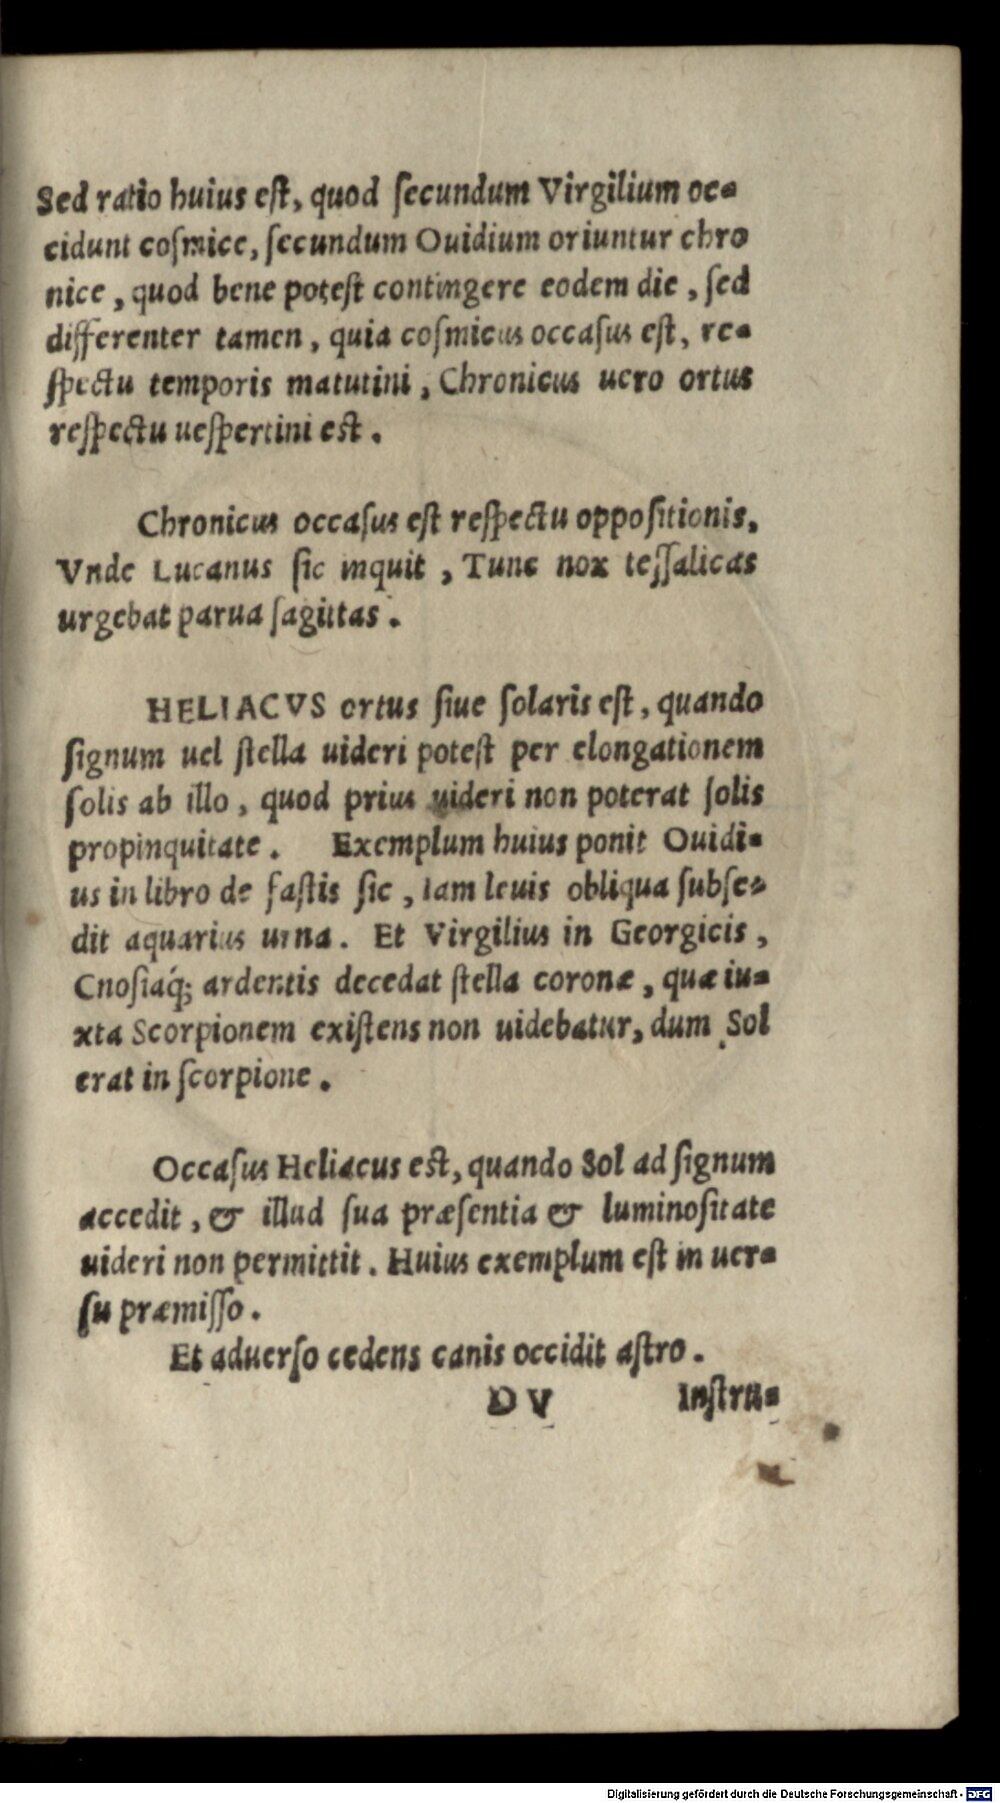 Sed ratio huius eſt, quod ſecundum Virgilium oc-
cidunt coſmice, ſecundum Ouidium oriuntur chro
nice, quod bene poteſt contingere eodem die, ſed
differenter tamen, quia coſmicus occaſus eſt, re-
ſpectu temporis matutini, Chronicus uero ortus
reſpectu ueſpertini eſt.
Chronicus occaſus eſt reſpectu oppoſitionis,
Vnde Lucanus ſic inquit, Tunc nox teſſalicas
urgebat parua ſagittas.
HELIACVS ortus ſiue ſolaris eſt, quando
ſignum uel ſtella uideri poteſt per elongationem
ſolis ab illo, quod prius uideri non poterat ſolis
propinquitate. Exemplum huius ponit Ouidi-
us in libro de faſtis ſic, Iam leuis obliqua ſubſe-
dit aquarius urna. Et Virgilius in Georgicis,
Cnoſiaq́; ardentis decedat ſtella coronæ, quæ iu-
xta Scorpionem exiſtens non uidebatur, dum Sol
erat in ſcorpione.
Occaſus Heliacus eſt, quando Sol ad ſignum
accedit, & illud ſua præſentia & luminoſitate
uideri non permittit. Huius exemplum eſt in uer-
ſu præmiſſo.
Et aduerſo cedens canis occidit aſtro.
D V Inſtru-
Digitalisierung gefördert durch die Deutsche Forschungsgemeinschaft - DFG